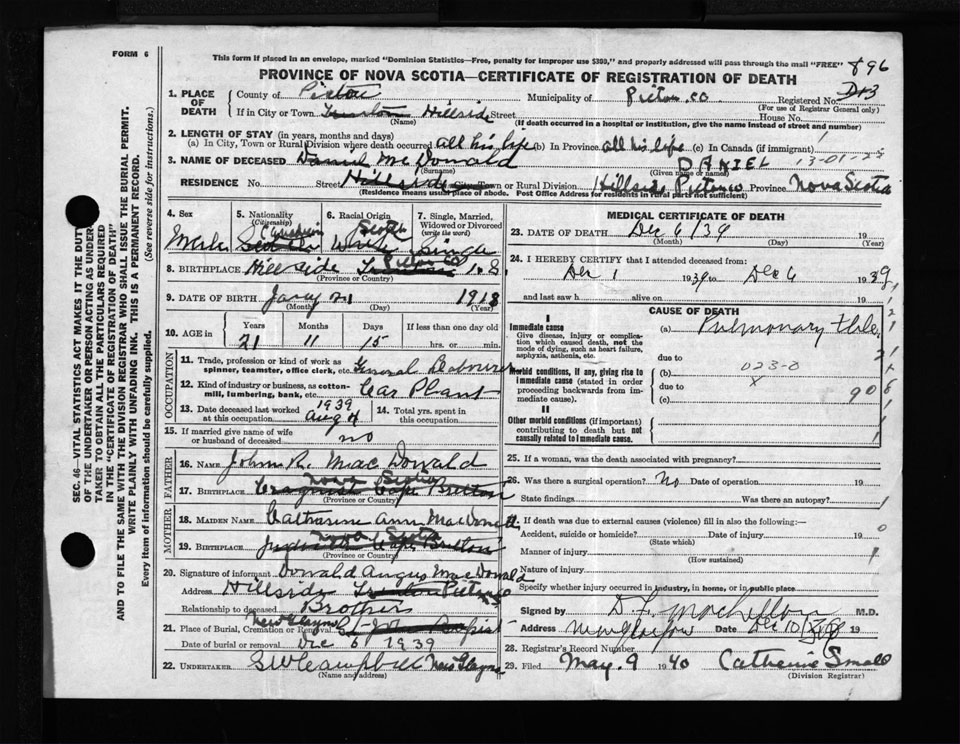 FORM 6
This form if placed in an envelope, marked "Dominion Statistics—Free, penalty for improper use $300," and properly addressed will pass through the mail "FREE"
896
PROVINCE OF NOVA SCOTIA—CERTIFICATE OF REGISTRATION OF DEATH
1. PLACE OF DEATH
County of Pictou
Municipality of Pictou Co
Registered No.
(For use of Registrar General only)
If in City or Town Trenton Hillside Street House No.
(Name) (If death occurred in a hospital or institution, give the name instead of street and number)
2. LENGTH OF STAY (in years, months and days)
(a) In City, Town or Rural Division where death occurred all his life (b) In Province all his life (c) In Canada (if immigrant)
3. NAME OF DECEASED Daniel McDonald DANIEL 13-01-25
(Surname) (Given name or names)
RESIDENCE No. Street Hillside Town or Rural Division Hillside Pictou Co Province Nova Scotia
(Residence means usual place of abode. Post Office Address for residents in rural parts not sufficient)
4. Sex
Male
5. Nationality
(Citizenship)
Canadian
6. Racial Origin
Scotch
White
7. Single, Married, Widowed or Divorced
(write the word)
Single
8. BIRTHPLACE Hillside Trenton Pictou Co N.S.
(Province or Country)
9. DATE OF BIRTH Jany 21 1918
(Month) (Day) (Year)
10. AGE in Years Months Days If less than one day old
21 11 15 hrs. or min.
OCCUPATION
11. Trade, profession or kind of work as spinner, teamster, office clerk, etc. General Labourer
12. Kind of industry or business, as cotton-mill, lumbering, bank, etc. Car Plant
13. Date deceased last worked at this occupation 1939 Aug
14. Total yrs. spent in this occupation
15. If married give name of wife or husband of deceased no
FATHER
16. NAME John R. MacDonald
17. BIRTHPLACE Nova Scotia Cape Breton
(Province or Country)
MOTHER
18. MAIDEN NAME Catharine Ann MacDonald
19. BIRTHPLACE Nova Scotia Judique Cape Breton
(Province or Country)
20. Signature of informant Donald Angus MacDonald
Address Hillside Trenton Pictou Co
Relationship to deceased Brother
21. Place of Burial, Cremation or Removal New Glasgow
Date of burial or removal Dec 1939
22. UNDERTAKER S W Campbell New Glasgow
(Name and address)
MEDICAL CERTIFICATE OF DEATH
23. DATE OF DEATH Dec 6/39 19
(Month) (Day) (Year)
24. I HEREBY CERTIFY that I attended deceased from:
Dec 1 1939 to Dec 6 1939
and last saw h alive on 19
CAUSE OF DEATH
I
Immediate cause
Give disease, injury or complication which caused death, not the mode of dying, such as heart failure, asphyxia, asthenia, etc.
(a) Pulmonary Tble
due to
Morbid conditions, if any, giving rise to immediate cause (stated in order proceeding backwards from immediate cause).
(b) 023-0
due to x
(c) 906
II
Other morbid conditions (if important) contributing to death but not causally related to immediate cause.
25. If a woman, was the death associated with pregnancy?
26. Was there a surgical operation? No Date of operation 19
State findings Was there an autopsy?
27. If death was due to external causes (violence) fill in also the following:—
Accident, suicide or homicide? Date of injury 19
(State which)
Manner of injury
(How sustained)
Nature of injury
Specify whether injury occurred in industry, in home, or in public place
Signed by D F MacLellan M.D.
Address New Glasgow Date Dec 10/39 19
28. Registrar's Record Number
29. Filed May. 9 1940 Catherine Small
(Division Registrar)
SEC. 46—VITAL STATISTICS ACT MAKES IT THE DUTY OF THE UNDERTAKER OR PERSON ACTING AS UNDERTAKER TO OBTAIN ALL THE PARTICULARS REQUIRED IN THE "CERTIFICATE OF REGISTRATION OF DEATH" AND TO FILE THE SAME WITH THE DIVISION REGISTRAR WHO SHALL ISSUE THE BURIAL PERMIT.
WRITE PLAINLY WITH UNFADING INK. THIS IS A PERMANENT RECORD.
Every item of information should be carefully supplied. (See reverse side for instructions.)